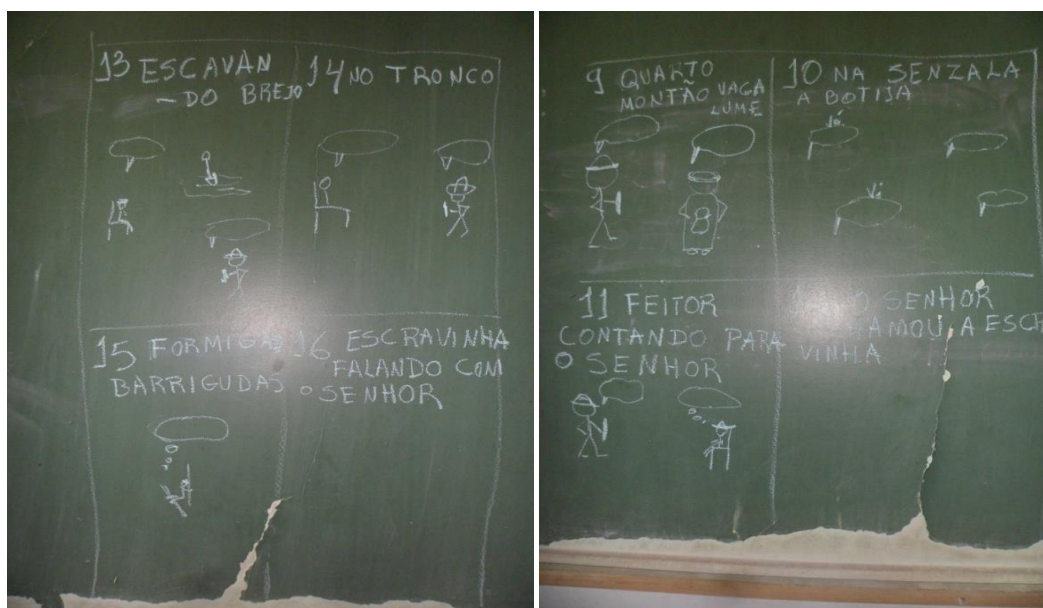 13 ESCAVAN
-DO BREJO
14 NO TRONCO
15 FORMIGAS
BARRIGUDAS
16 ESCRAVINHA
FALANDO COM
O SENHOR
9 QUARTO
MONTÃO VAGA
LUME
8
10 NA SENZALA
A BOTIJA
Vó
Vó
11 FEITOR
CONTANDO PARA
O SENHOR
O SENHOR
A ESCR
VINHA